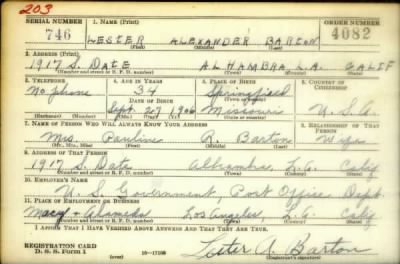 203
SERIAL NUMBER 1. NAME (Print) ORDER NUMBER
746 LESTER ALEXANDER BARTON 4082
(First) (Middle) (Last)
2. ADDRESS (Print)
1917 S. DATE ALHAMBRA, L.A. CALIF
(Number and street or R. F. D. number) (Town) (County) (State)
3. TELEPHONE 4. AGE IN YEARS 5. PLACE OF BIRTH 6. COUNTRY OF CITIZENSHIP
No phone 34 Springfield
DATE OF BIRTH
Sept. 27 1906 Missouri U.S.A.
(Exchange) (Number) (Mo.) (Day) (Yr.) (State or country)
7. NAME OF PERSON WHO WILL ALWAYS KNOW YOUR ADDRESS 8. RELATIONSHIP OF THAT PERSON
Mrs. Pauline R. Barton Wife
(Mr., Mrs., Miss) (First) (Middle) (Last)
9. ADDRESS OF THAT PERSON
1917 S. Date Alhambra, L.A. Calif
(Number and street or R. F. D. number) (Town) (County) (State)
10. EMPLOYER'S NAME
U.S. Government, Post Office Dept.
11. PLACE OF EMPLOYMENT OR BUSINESS
Macy & Alameda Los Angeles, L.A. Calif
(Number and street or R. F. D. number) (Town) (County) (State)
I AFFIRM THAT I HAVE VERIFIED ABOVE ANSWERS AND THAT THEY ARE TRUE.
REGISTRATION CARD
D. S. S. Form 1 (over) 16—17105 Lester A. Barton
(Registrant's signature)